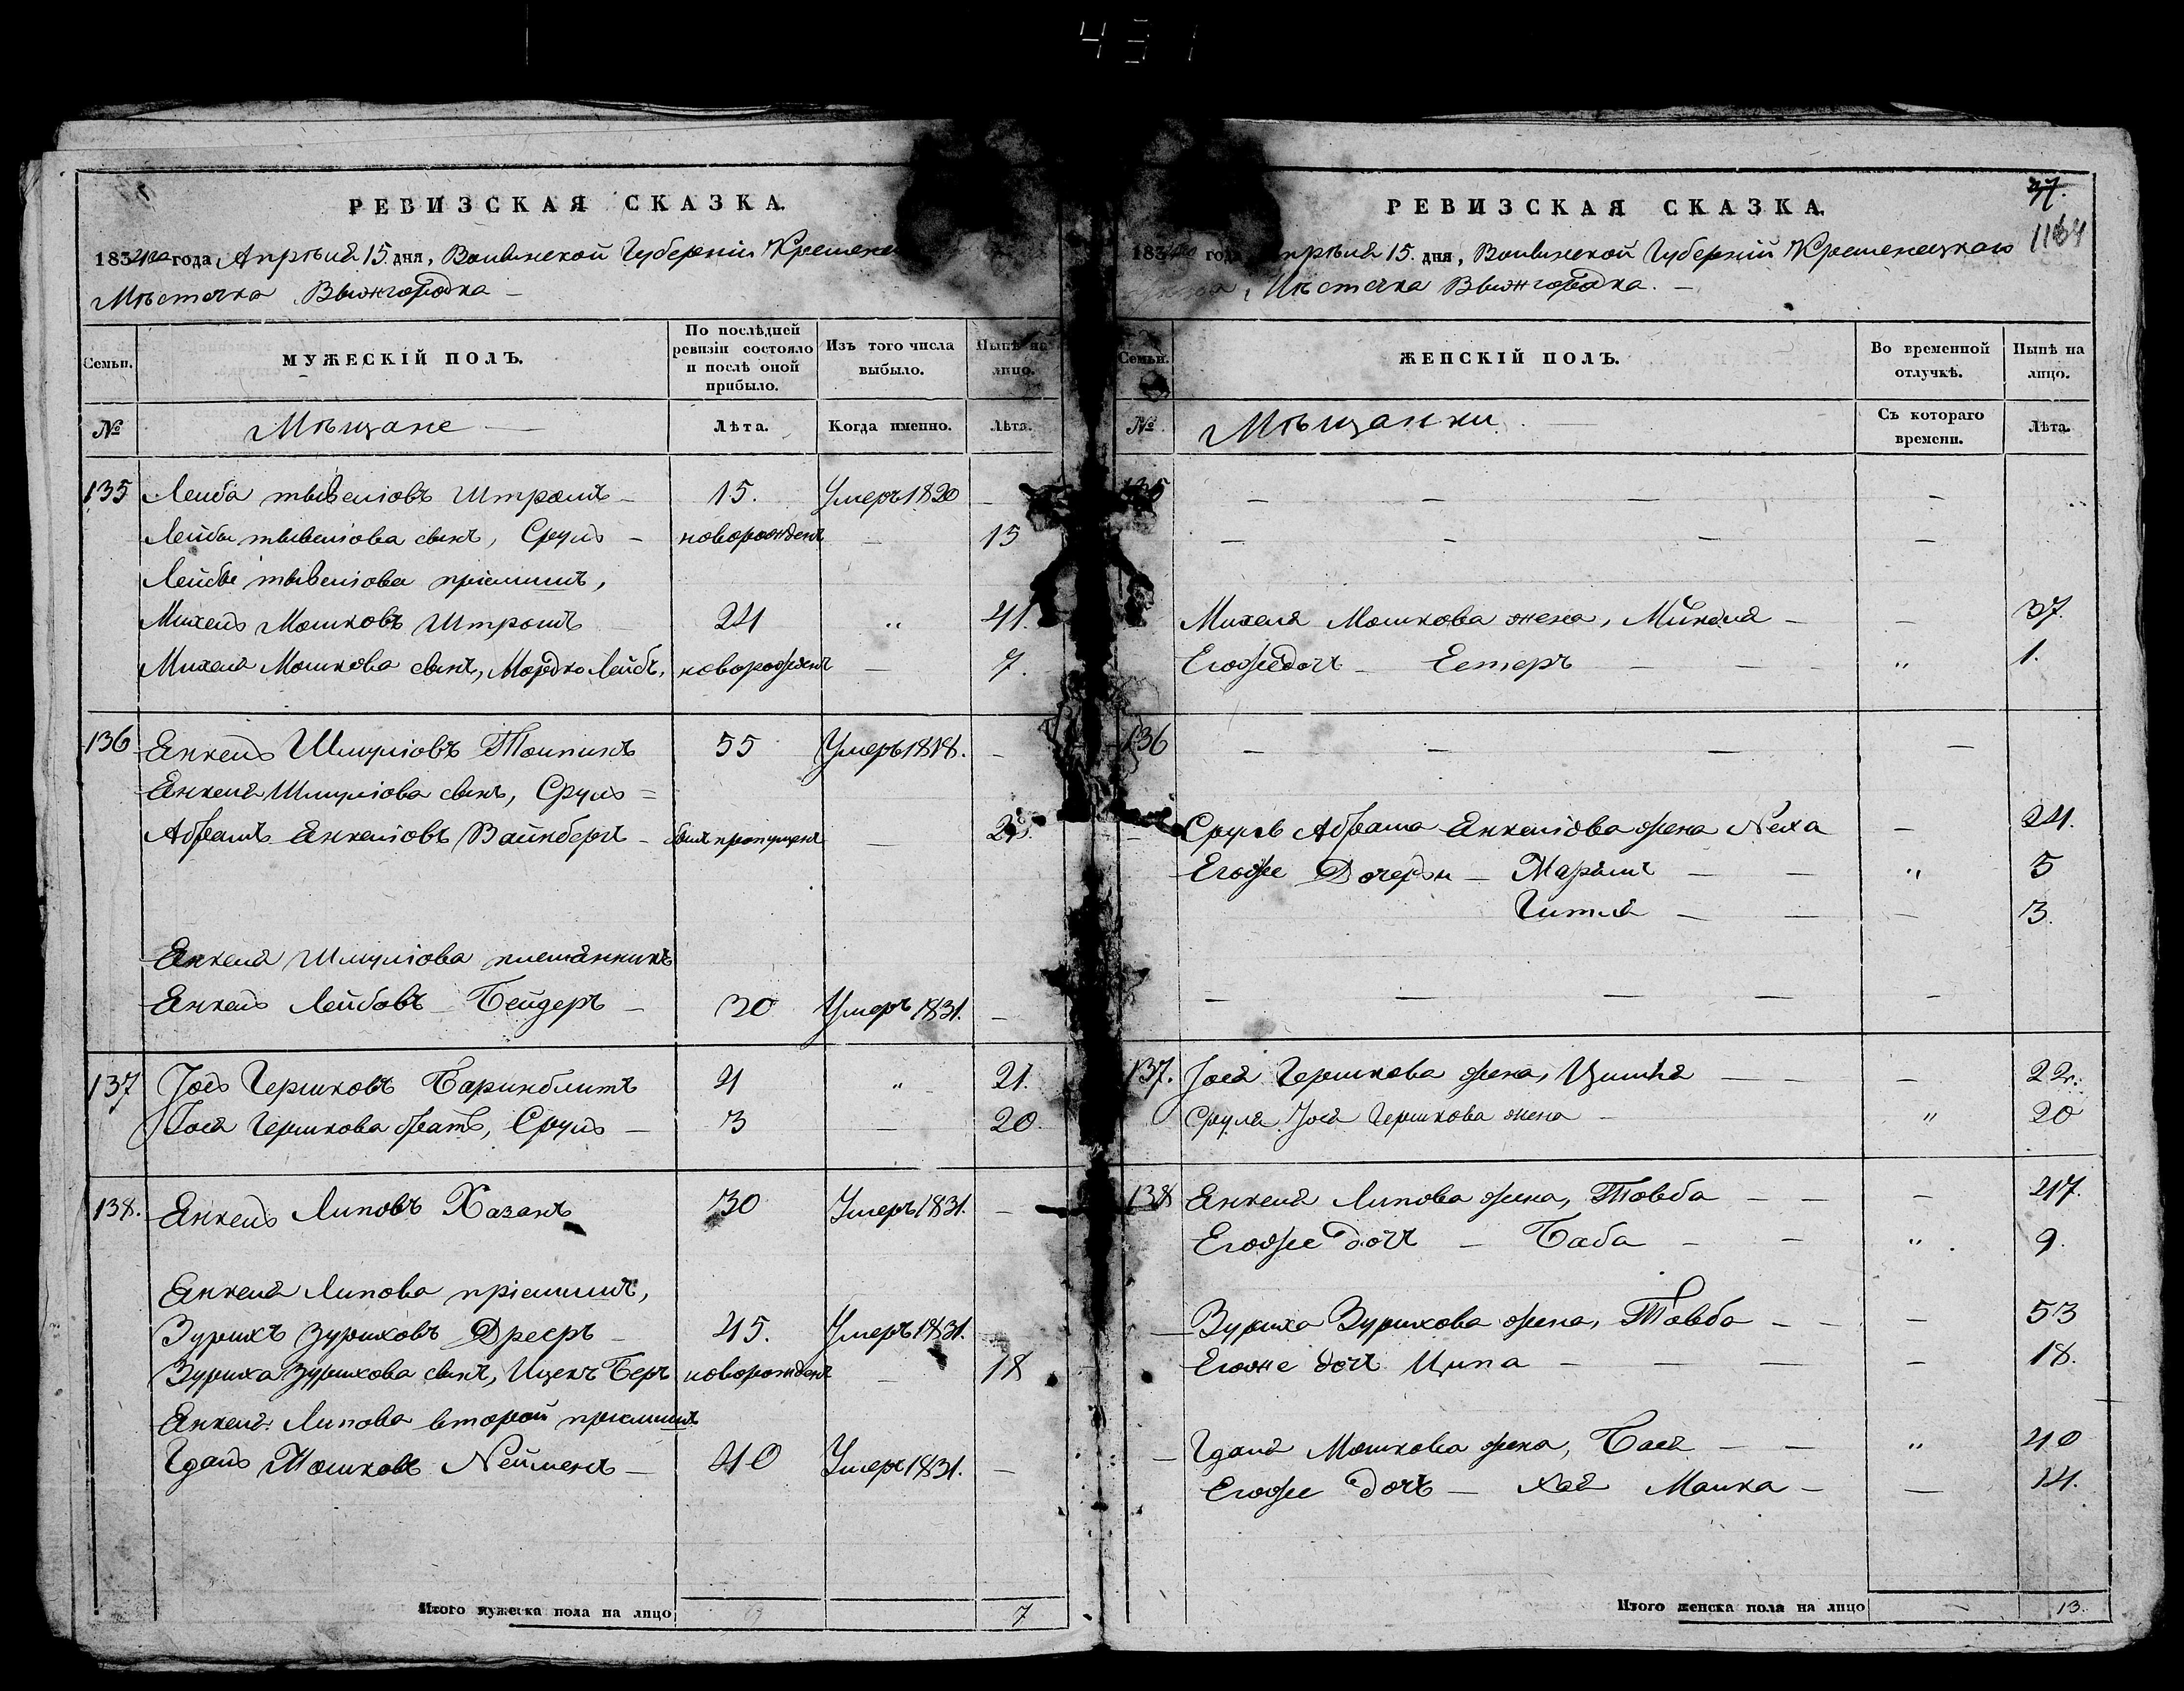 431
РЕВИЗСКАЯ СКАЗКА.
1834го года Апрѣля 15. дня, Волынской Губерніи Кременец
Мѣстечка Вышгородка
Семьи.
МУЖЕСКІЙ ПОЛЪ.
По послѣдней ревизіи состояло и послѣ оной прибыло.
Изъ того числа выбыло.
Нынѣ на лицо.
№
Мѣщане
Лѣта.
Когда именно.
Лѣта.
135 Лейба Тывелiовъ Штромъ 15. Умеръ 1820
Лейбы Тывелiова сынъ, Сруль новорожденъ 15
Лейбы Тывелiова пріемышъ,
Михель Мошковъ Штромъ 24 " 41.
Михеля Мошкова сынъ, Мордко Лейбъ, новорожденъ 7.
136 Янкель Шмулiовъ Толпинъ 55 Умеръ 1818.
Янкеля Шмулiова сынъ, Сруль
Абрамъ Янкелiовъ Вайнбергъ былъ пропущенъ
Янкеля Шмулiова племянникъ
Янкель Лейбовъ Бейдеръ 30 Умеръ 1831.
137 Іось Гершковъ Баринблитъ 4 " 21.
Іося Гершкова братъ, Сруль 3 20.
138. Янкель Липовъ Хазанъ 30 Умеръ 1831.
Янкеля Липова пріемышъ,
Зурихъ Зуриховъ Дресръ 45. Умеръ 1831.
Зуриха Зурихова сынъ, Ицекъ Беръ новорожденъ 18
Янкеля Липова второй пріемышъ
Гдаль Мошковъ Нейменъ 40 Умеръ 1831.
Итого мужеска пола на лицо 7
РЕВИЗСКАЯ СКАЗКА.
37.
1164
1834го года Апрѣля 15. дня, Волынской Губерніи Кременецкаго
уѣзда, Мѣстечка Вышгородка.
Семьи.
ЖЕНСКІЙ ПОЛЪ.
Во временной отлучкѣ.
Нынѣ на лицо.
№
Мѣщанки
Съ котораго времени.
Лѣта.
135
Михеля Мошкова жена, Миндля 37.
Егоже дочь Естеръ " 1.
136
Сруль Абрама Янкелiова жена Неха 24.
Егоже Дочери Марымъ " 5
Гитля 3.
137. Іося Гершкова жена, Цимля 22.
Сруля Іося Гершкова жена " 20
138 Янкеля Липова жена, Товба 47.
Егоже дочь Баба " 9.
Зуриха Зурихова жена, Товба 53
Егоже дочь Ципа 18.
Гдаля Мошкова жена, Бася " 40
Егоже дочь Хая Малка 14.
Итого женска пола на лицо 13.